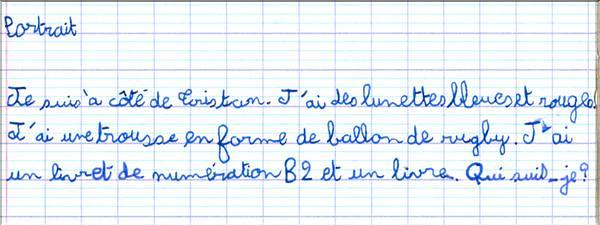 Portrait
Je suis à côté de Tristan. J'ai des lunettes bleues et rouges.
J'ai une trousse en forme de ballon de rugby. J'ai
un livret de numération B2 et un livre. Qui suis-je?